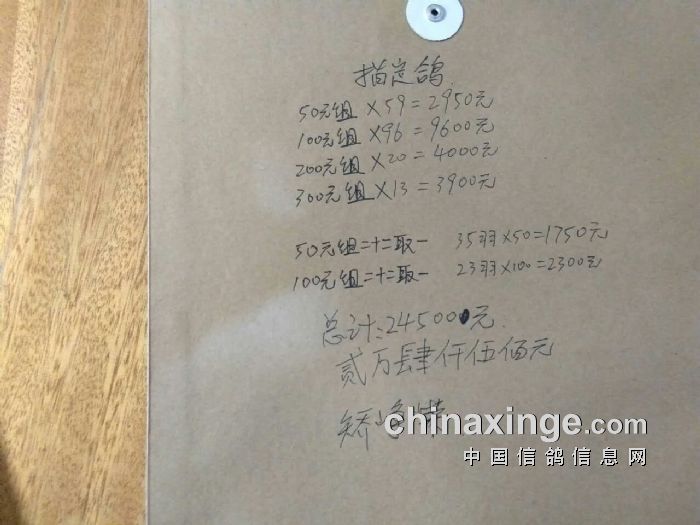 指定鸽
50元组×59=2950元
100元组×96=9600元
200元组×20=4000元
300元组×13=3900元
50元组二十二取一 35羽×50=1750元
100元组二十二取一 23羽×100=2300元
总计:24500元
贰万肆仟伍佰元
矫
chinaxinge.com
中国信鸽信息网